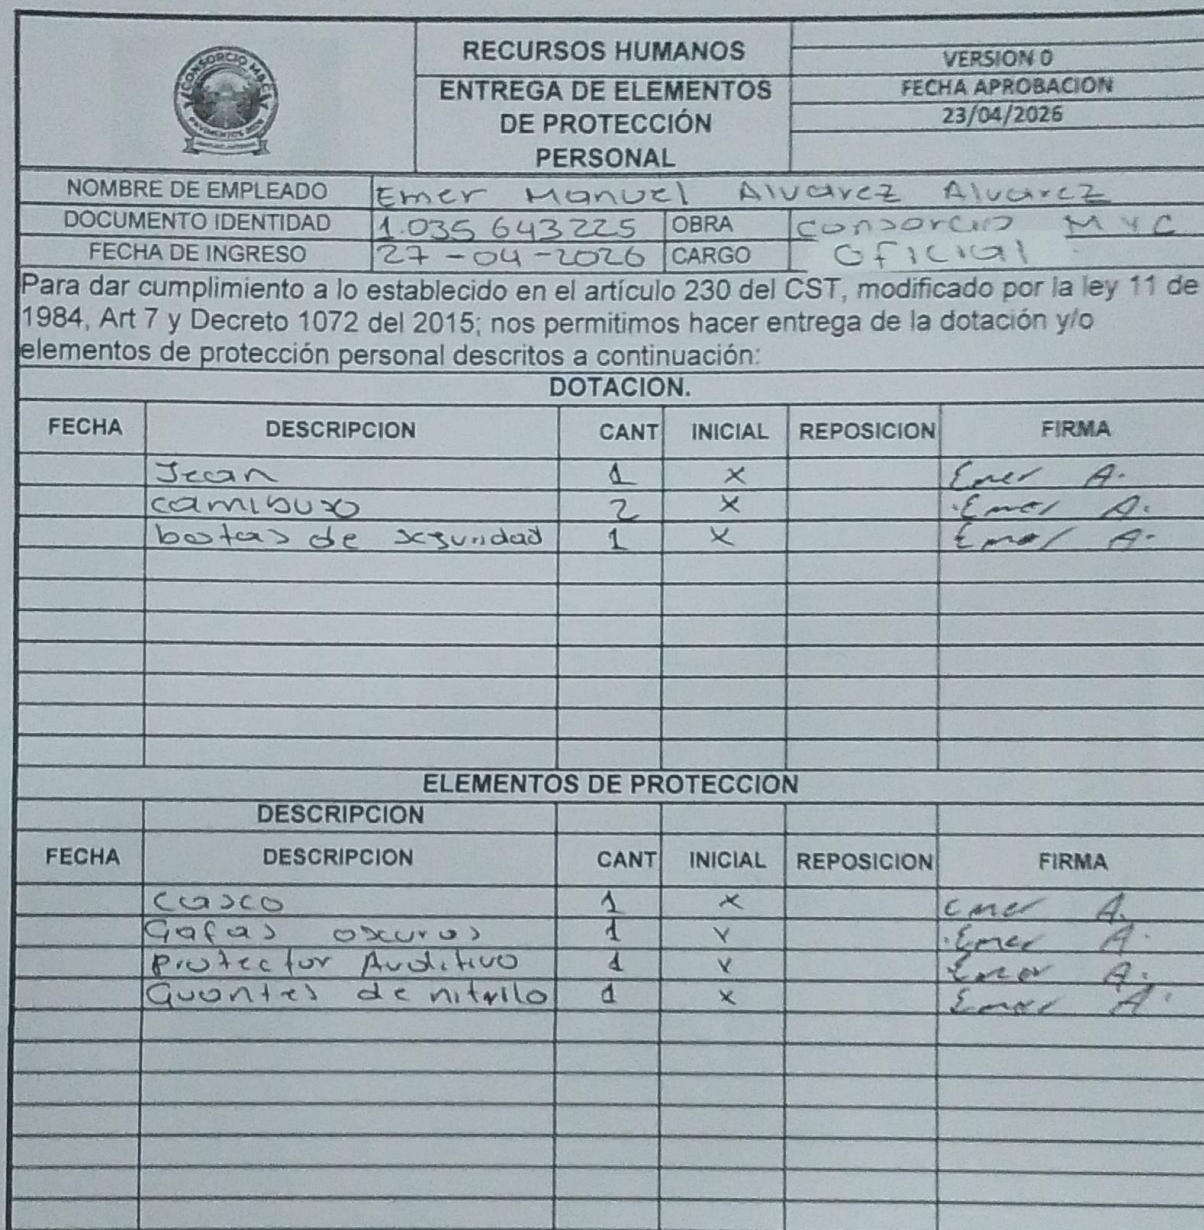 CONSORCIO
RECURSOS HUMANOS
ENTREGA DE ELEMENTOS
DE PROTECCIÓN
PERSONAL
VERSION 0
FECHA APROBACION
23/04/2026
NOMBRE DE EMPLEADO Emer Manuel Alvarez Alvarez
DOCUMENTO IDENTIDAD 1.035 643225 OBRA consorcio MYC
FECHA DE INGRESO 27-04-2026 CARGO Oficial
Para dar cumplimiento a lo establecido en el artículo 230 del CST, modificado por la ley 11 de
1984, Art 7 y Decreto 1072 del 2015; nos permitimos hacer entrega de la dotación y/o
elementos de protección personal descritos a continuación:
DOTACION.
FECHA DESCRIPCION CANT INICIAL REPOSICION FIRMA
Jean 1 X Emer A.
camibuxo 2 X Emer A.
botas de seguridad 1 X Emer A.
ELEMENTOS DE PROTECCION
DESCRIPCION
FECHA DESCRIPCION CANT INICIAL REPOSICION FIRMA
Casco 1 X Emer A.
Gafas oscuras 1 X Emer A.
Protector Auditivo 1 X Emer A.
Guantes de nitrilo 1 X Emer A.